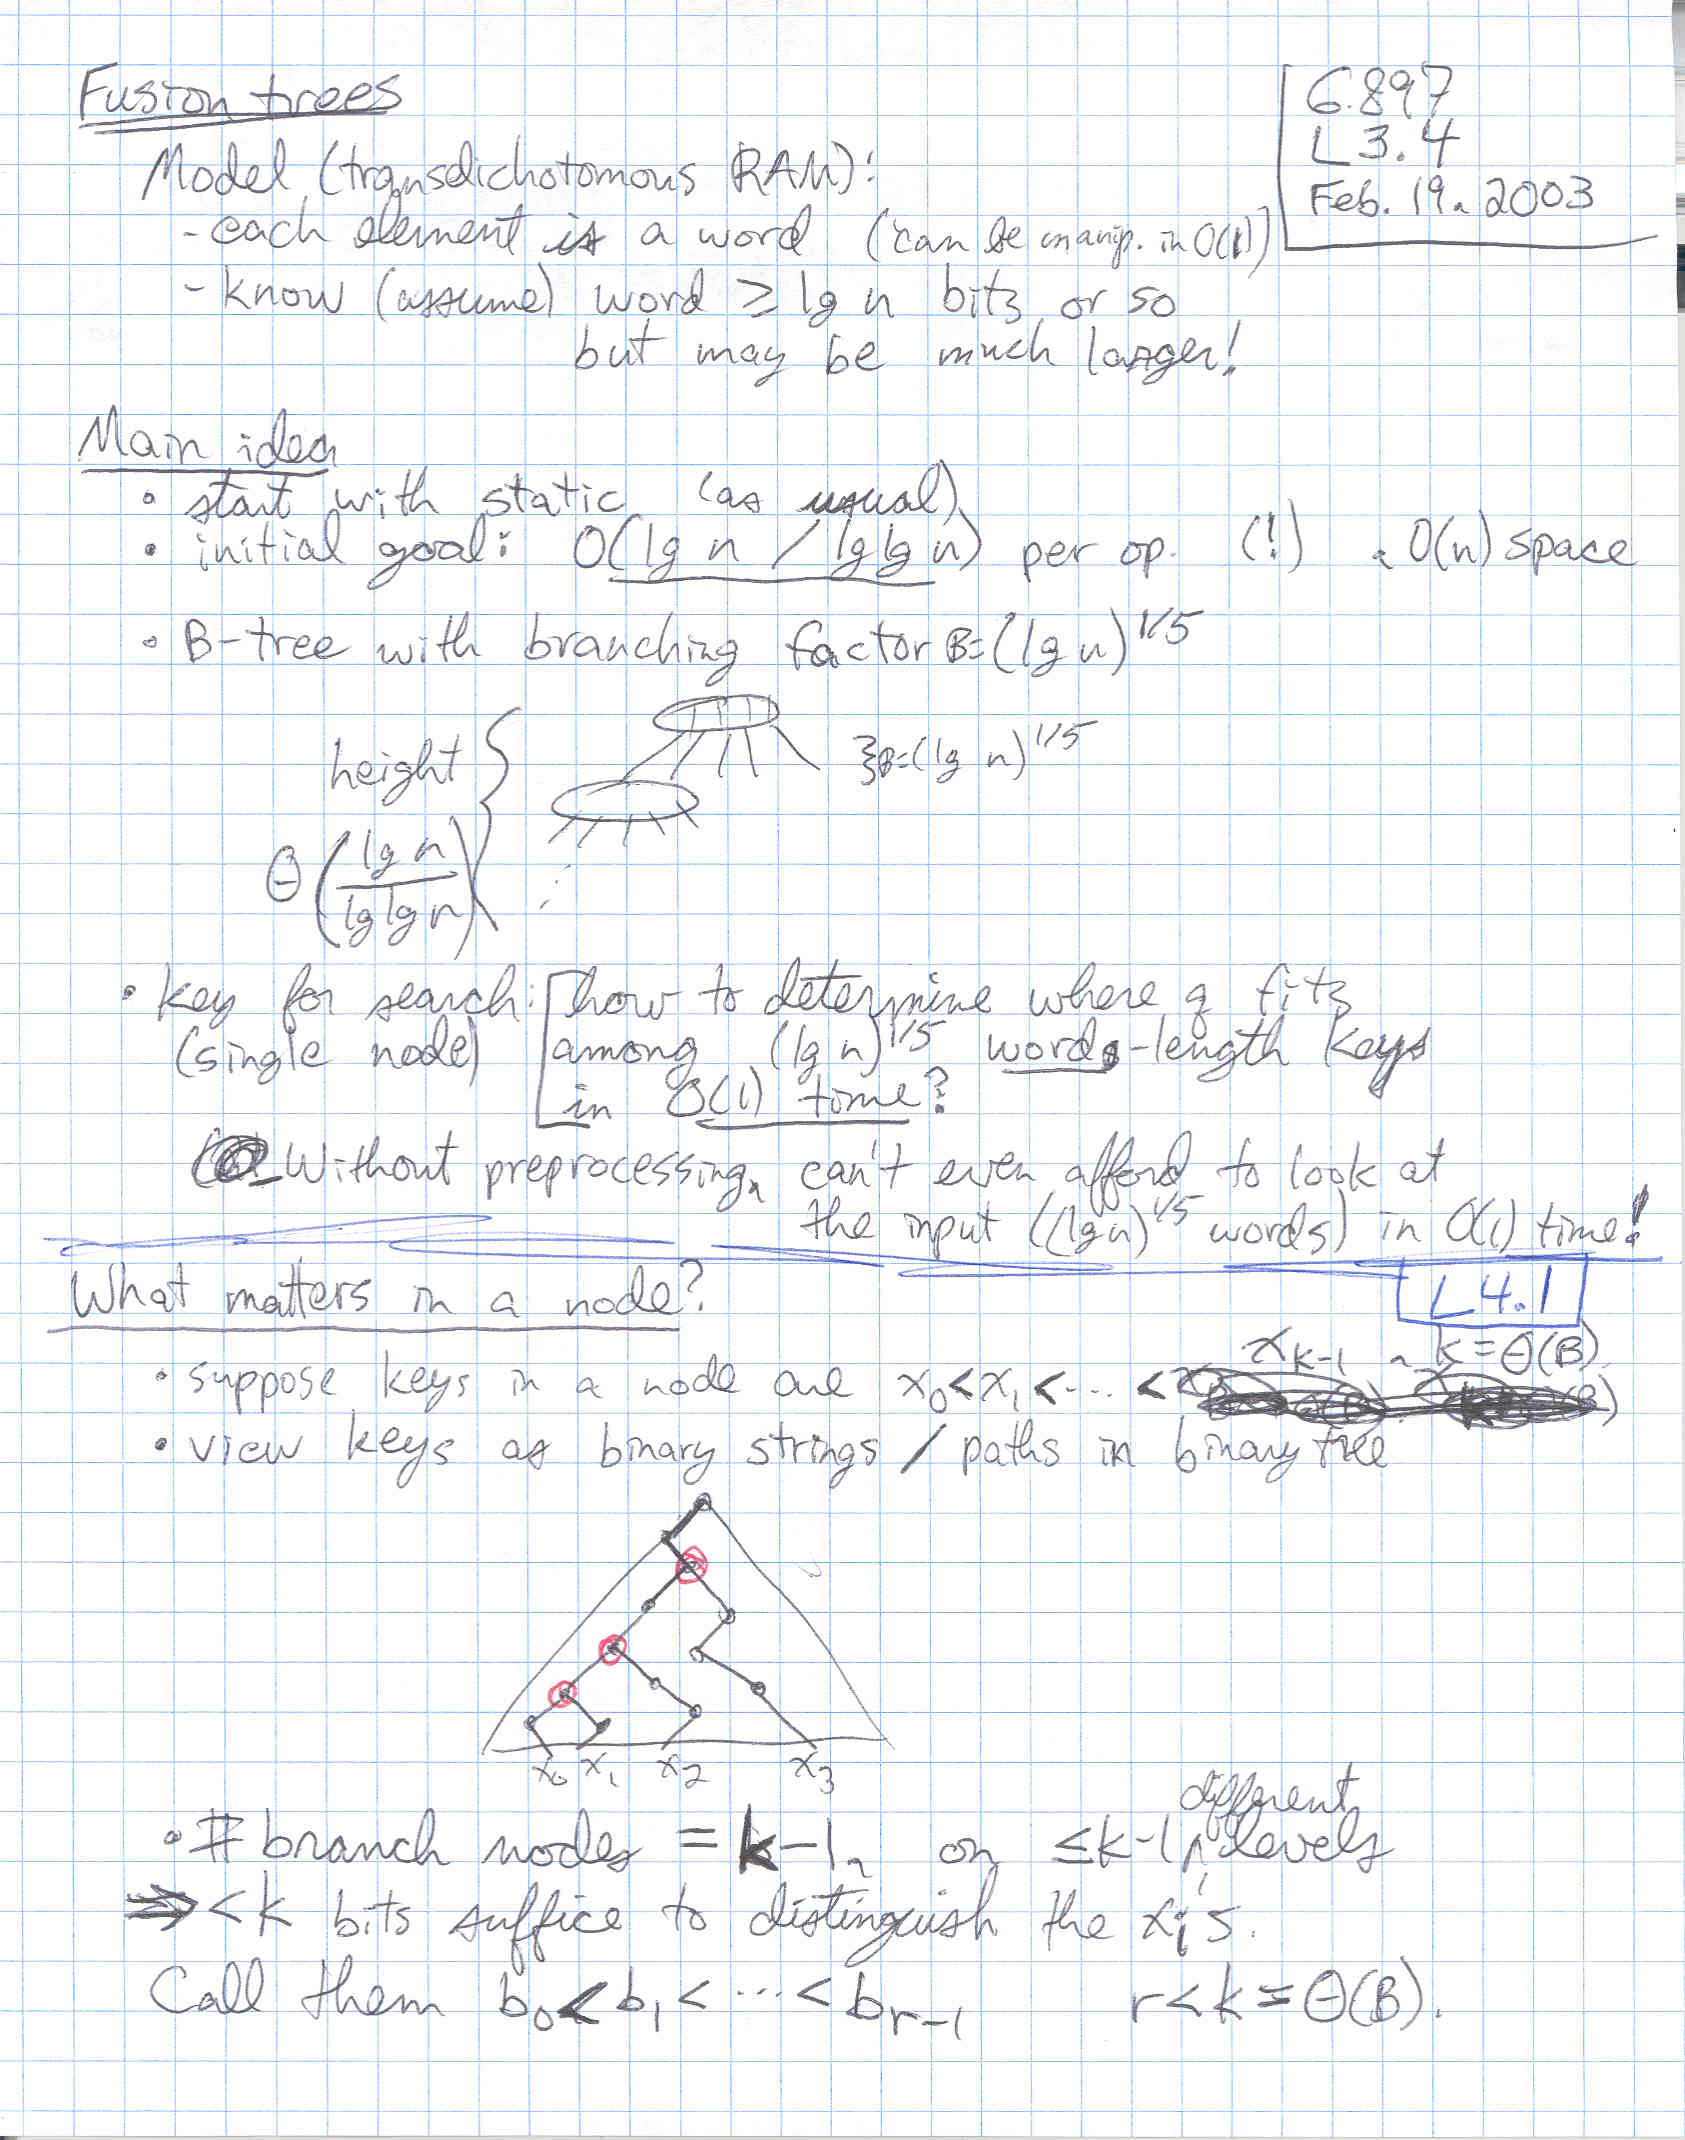 Fusion trees
6.897
L 3.4
Feb. 19, 2003
Model (transdichotomous RAM):
- each element is a word (can be manip. in O(1))
- know (assume) word ≥ lg n bits or so
but may be much larger!
Main idea
• start with static (as usual)
• initial goal: O(lg n / lg lg n) per op. (!) , O(n) space
• B-tree with branching factor B=(lg n)^1/5
height
}B=(lg n)^1/5
Θ(lg n / lg lg n)
• key for search: [how to determine where q fits
(single node) among (lg n)^1/5 words-length keys
in O(1) time?
Without preprocessing, can't even afford to look at
the input ((lg n)^1/5 words) in O(1) time!
L 4.1
What matters in a node?
• suppose keys in a node are x₀<x₁<...<x_k-1, k=Θ(B)
• view keys as binary strings / paths in binary tree
x₀ x₁ x₂ x₃
• # branch nodes = k-1, on ≤k-1 ^different levels
⇒ <k bits suffice to distinguish the xᵢ's.
Call them b₀<b₁<...<b_r-1 r<k=Θ(B).